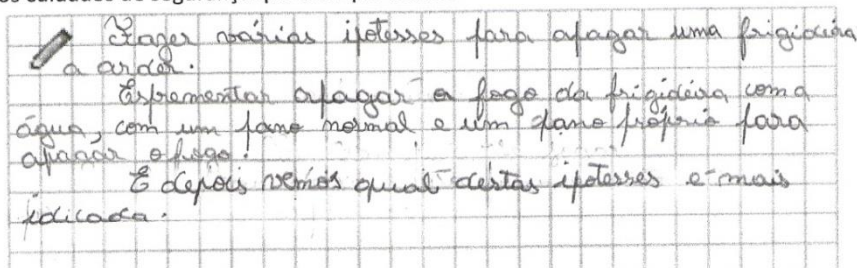 Fazer várias ipotesses para apagar uma frigideira
a arder.
Esprementar apagar o fogo da frigideira com a
água, com um pano normal e um pano própria para
apagar o fogo.
E depois vemos qual destas ipotesses e mais
idicada.